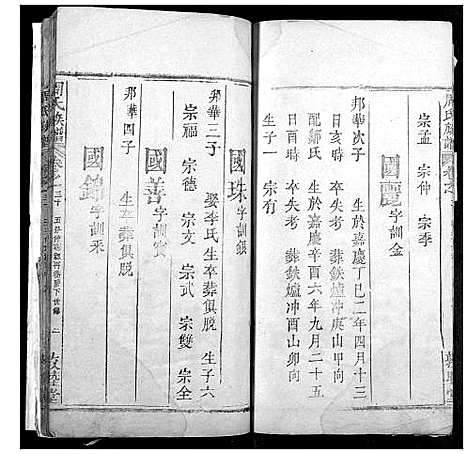 周氏族譜
宗孟　宗仲　宗季
國麗字訓金
邦華次子　生於嘉慶丁巳二年四月十三
日亥時　卒失考　葬鉄爐冲庚山甲向
配鄒氏　生於嘉慶辛酉六年九月二十五
日酉時　卒失考　葬鉄爐冲酉山卯向
生子一　宗有
國珠字訓銀
邦華三子　娶李氏生卒葬俱脱　生子六
宗福　宗德　宗文　宗武　宗雙　宗全
國善字訓宝
邦華四子　生卒葬俱脱
國錦字訓釆
周氏族譜